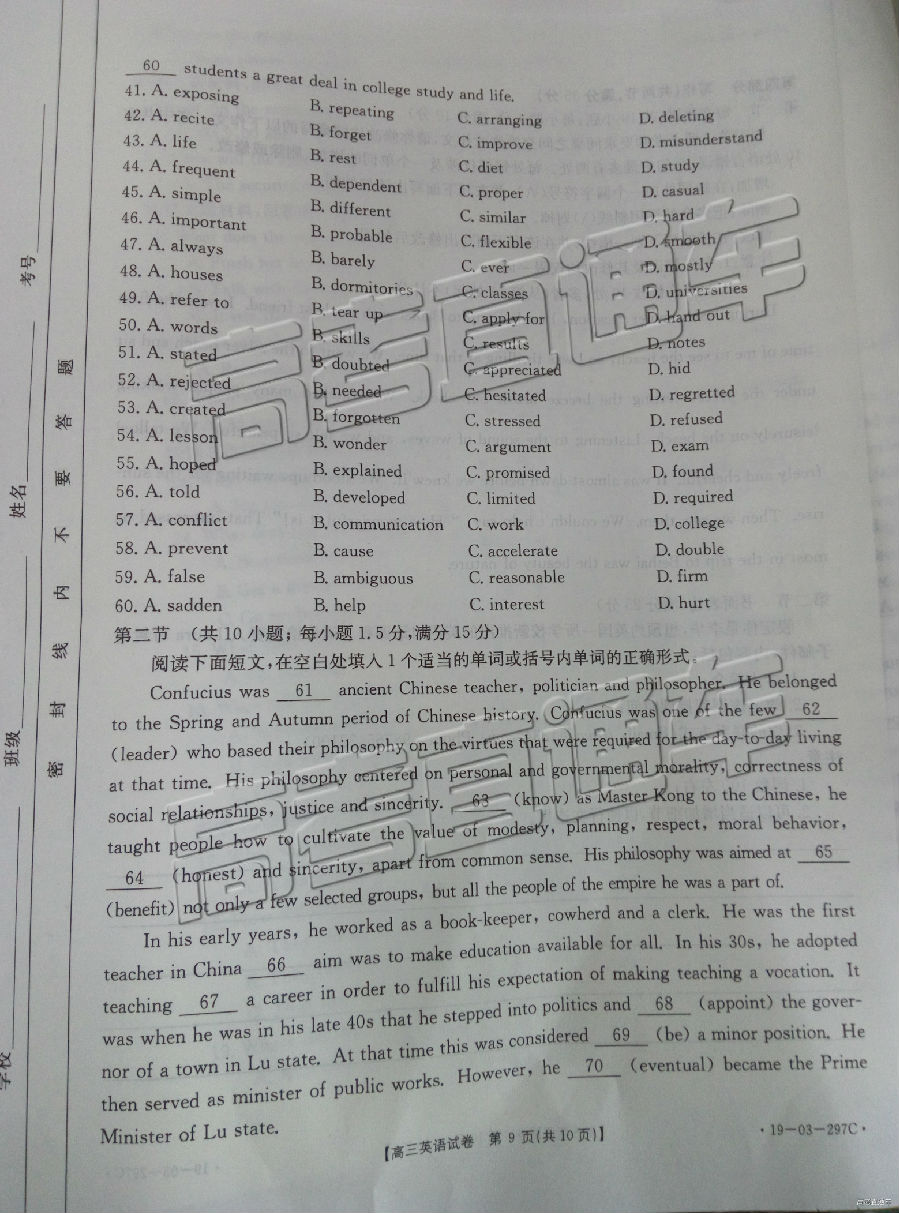 60 students a great deal in college study and life.
41. A. exposing B. repeating C. arranging D. deleting
42. A. recite B. forget C. improve D. misunderstand
43. A. life B. rest C. diet D. study
44. A. frequent B. dependent C. proper D. casual
45. A. simple B. different C. similar D. hard
46. A. important B. probable C. flexible D. smooth
47. A. always B. barely C. ever D. mostly
48. A. houses B. dormitories C. classes D. universities
49. A. refer to B. tear up C. apply for D. hand out
50. A. words B. skills C. results D. notes
51. A. stated B. doubted C. appreciated D. hid
52. A. rejected B. needed C. hesitated D. regretted
53. A. created B. forgotten C. stressed D. refused
54. A. lesson B. wonder C. argument D. exam
55. A. hoped B. explained C. promised D. found
56. A. told B. developed C. limited D. required
57. A. conflict B. communication C. work D. college
58. A. prevent B. cause C. accelerate D. double
59. A. false B. ambiguous C. reasonable D. firm
60. A. sadden B. help C. interest D. hurt
第二节 (共10小题;每小题1.5分,满分15分)
阅读下面短文,在空白处填入1个适当的单词或括号内单词的正确形式。
Confucius was 61 ancient Chinese teacher, politician and philosopher. He belonged
to the Spring and Autumn period of Chinese history. Confucius was one of the few 62
(leader) who based their philosophy on the virtues that were required for the day-to-day living
at that time. His philosophy centered on personal and governmental morality, correctness of
social relationships, justice and sincerity. 63 (know) as Master Kong to the Chinese, he
taught people how to cultivate the value of modesty, planning, respect, moral behavior,
64 (honest) and sincerity, apart from common sense. His philosophy was aimed at 65
(benefit) not only a few selected groups, but all the people of the empire he was a part of.
In his early years, he worked as a book-keeper, cowherd and a clerk. He was the first
teacher in China 66 aim was to make education available for all. In his 30s, he adopted
teaching 67 a career in order to fulfill his expectation of making teaching a vocation. It
was when he was in his late 40s that he stepped into politics and 68 (appoint) the gover-
nor of a town in Lu state. At that time this was considered 69 (be) a minor position. He
then served as minister of public works. However, he 70 (eventual) became the Prime
Minister of Lu state.
【高三英语试卷 第9页(共10页)】
·19-03-297C·
学校
班级
姓名
考号
密封线内不要答题